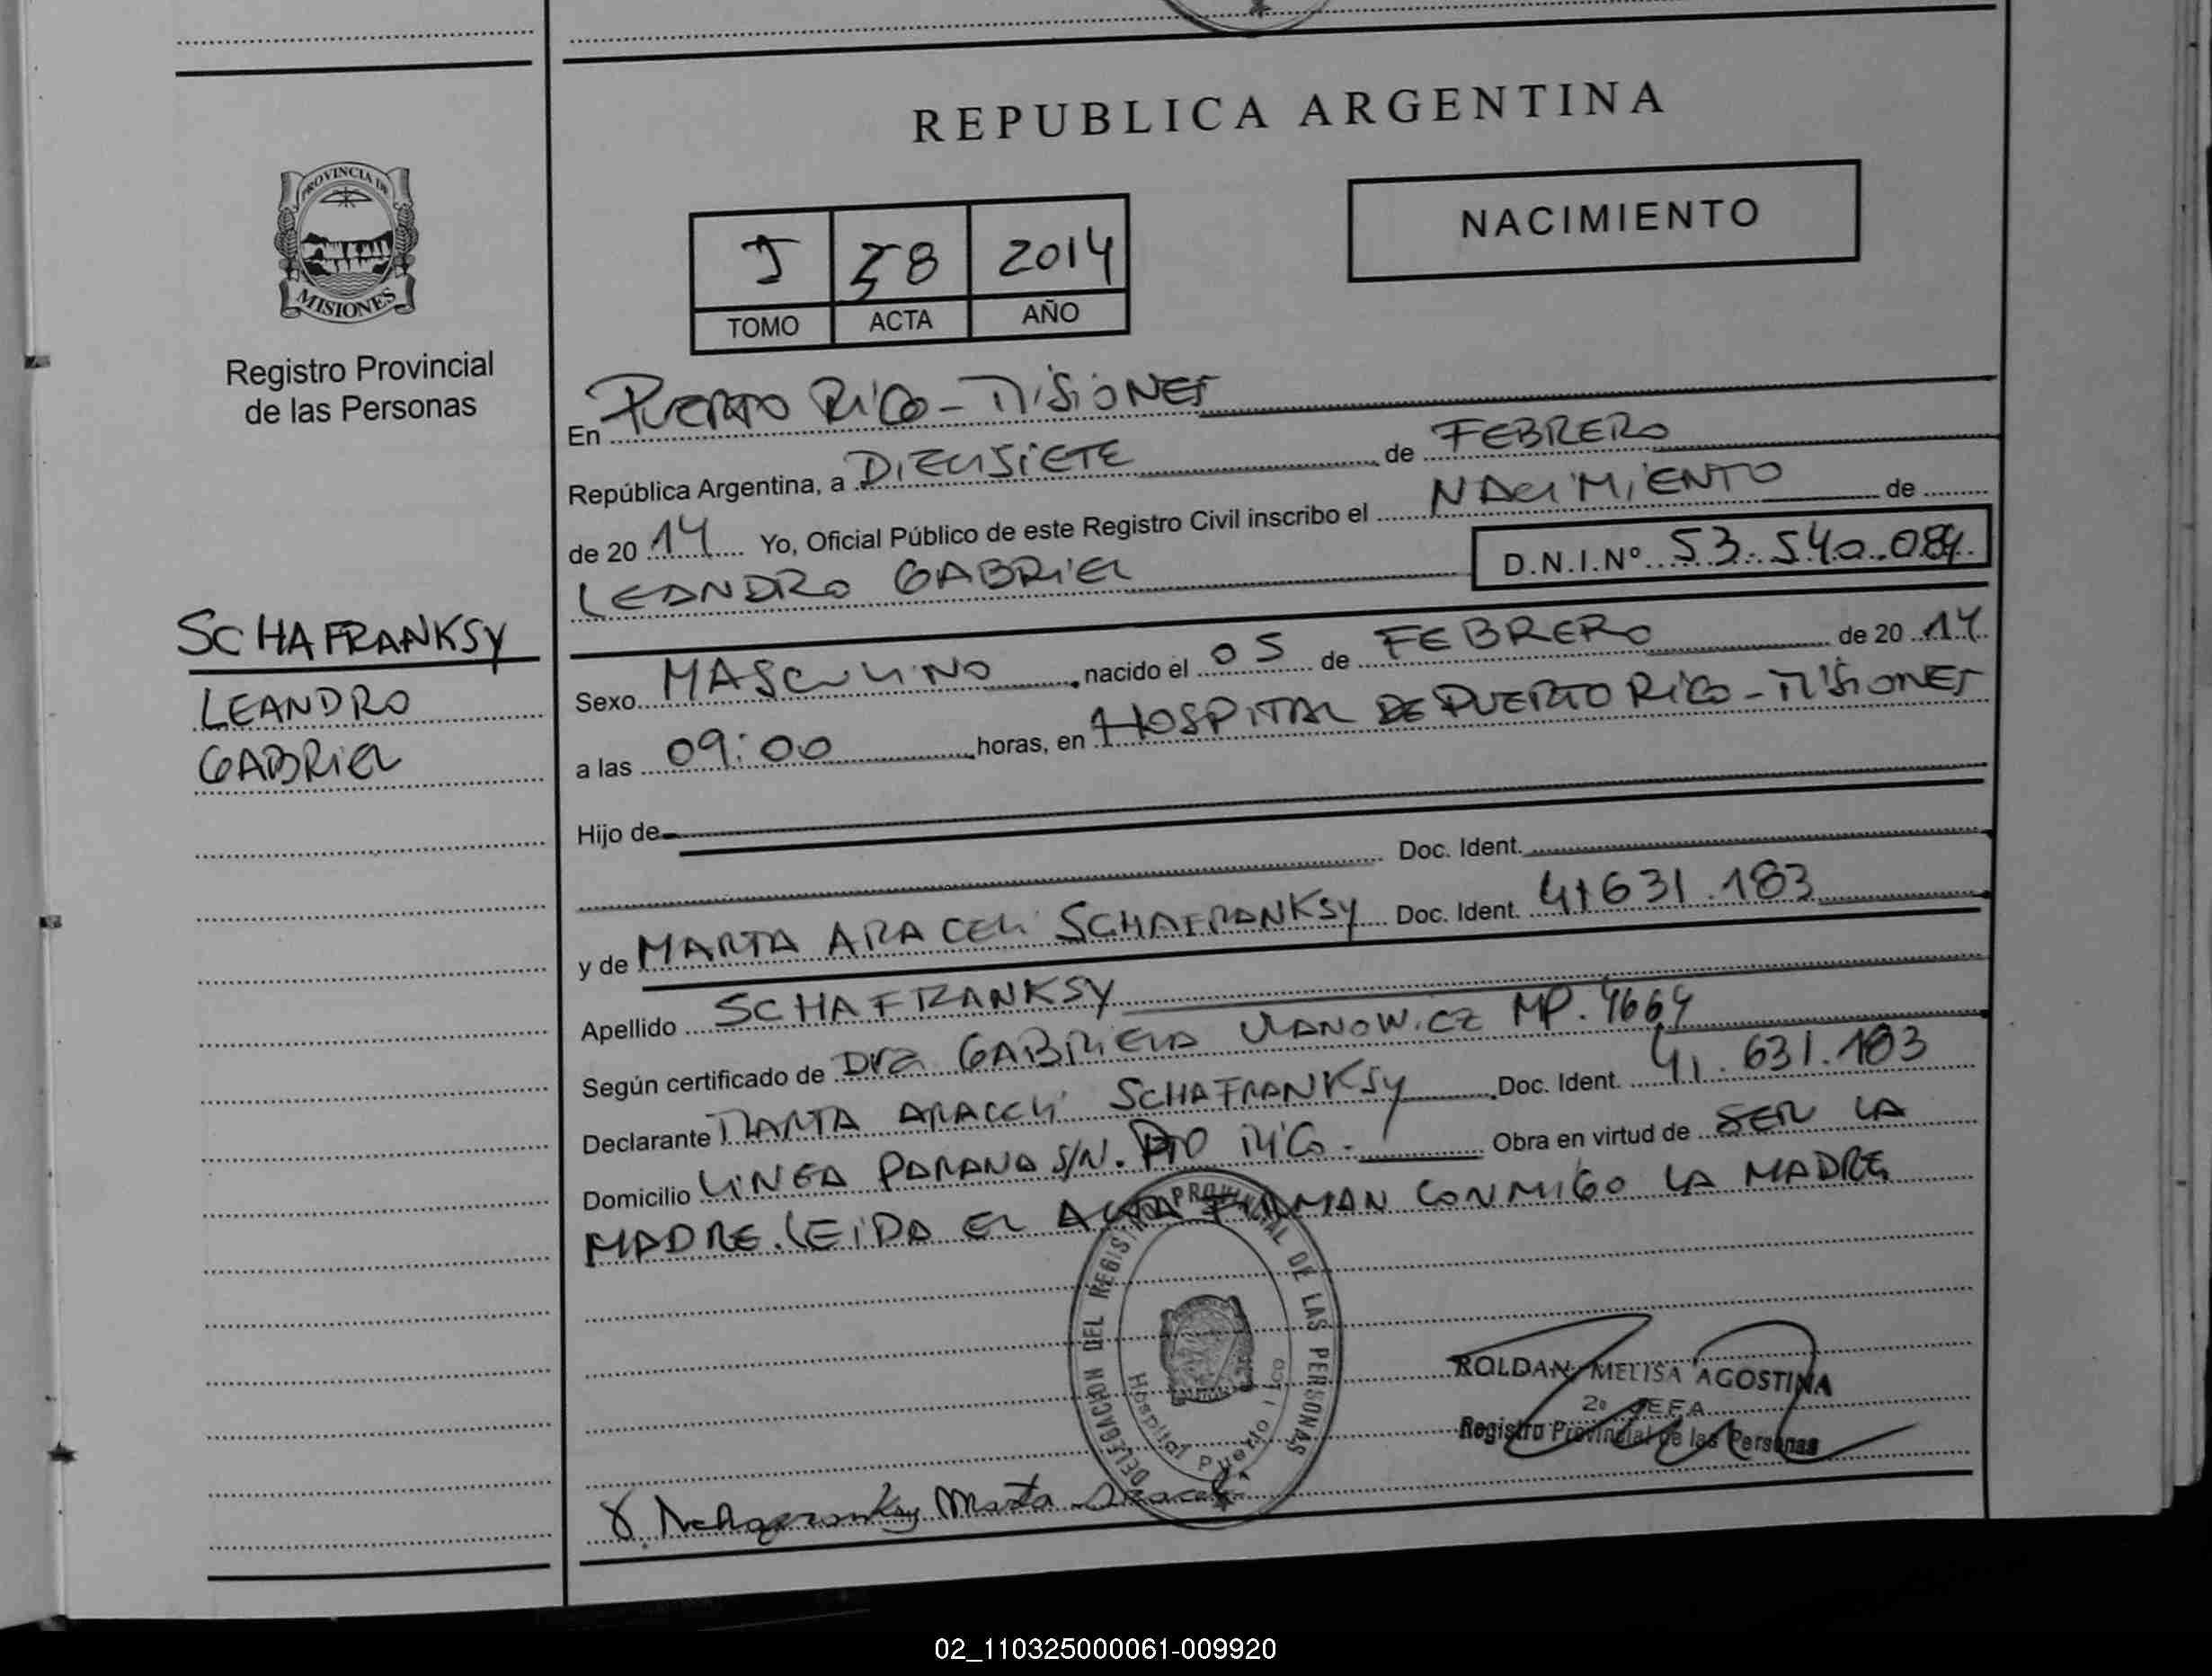 REPUBLICA ARGENTINA
PROVINCIA DE
MISIONES
Registro Provincial
de las Personas
NACIMIENTO
58 2014
TOMO ACTA AÑO
En PUERTO RICO - MISIONES
República Argentina, a DIECISIETE de FEBRERO
de 20 14 Yo, Oficial Público de este Registro Civil inscribo el NACIMIENTO de
LEANDRO GABRIEL D.N.I.Nº 53.540.084
SCHAFRANKSY
LEANDRO
GABRIEL
Sexo MASCULINO, nacido el 05 de FEBRERO de 20 14
a las 09:00 horas, en HOSPITAL DE PUERTO RICO - MISIONES
Hijo de
Doc. Ident.
y de MARTA ARACELI SCHAFRANKSY Doc. Ident. 41631.183
Apellido SCHAFRANKSY
Según certificado de Dra GABRIELA ULANOWICZ MP. 4664
Declarante MARTA ARACELI SCHAFRANKSY Doc. Ident. 41.631.183
Domicilio LINEA PARANA S/N. PTO RICO. Obra en virtud de SER LA
MADRE. LEIDA EL ACTA FIRMAN CONMIGO LA MADRE
DELEGACION DEL REGISTRO PROVINCIAL DE LAS PERSONAS
Hospital Puerto Rico
ROLDAN MELISA AGOSTINA
2º JEFA
Registro Provincial de las Personas
Schafransky Marta Araceli
02_110325000061-009920